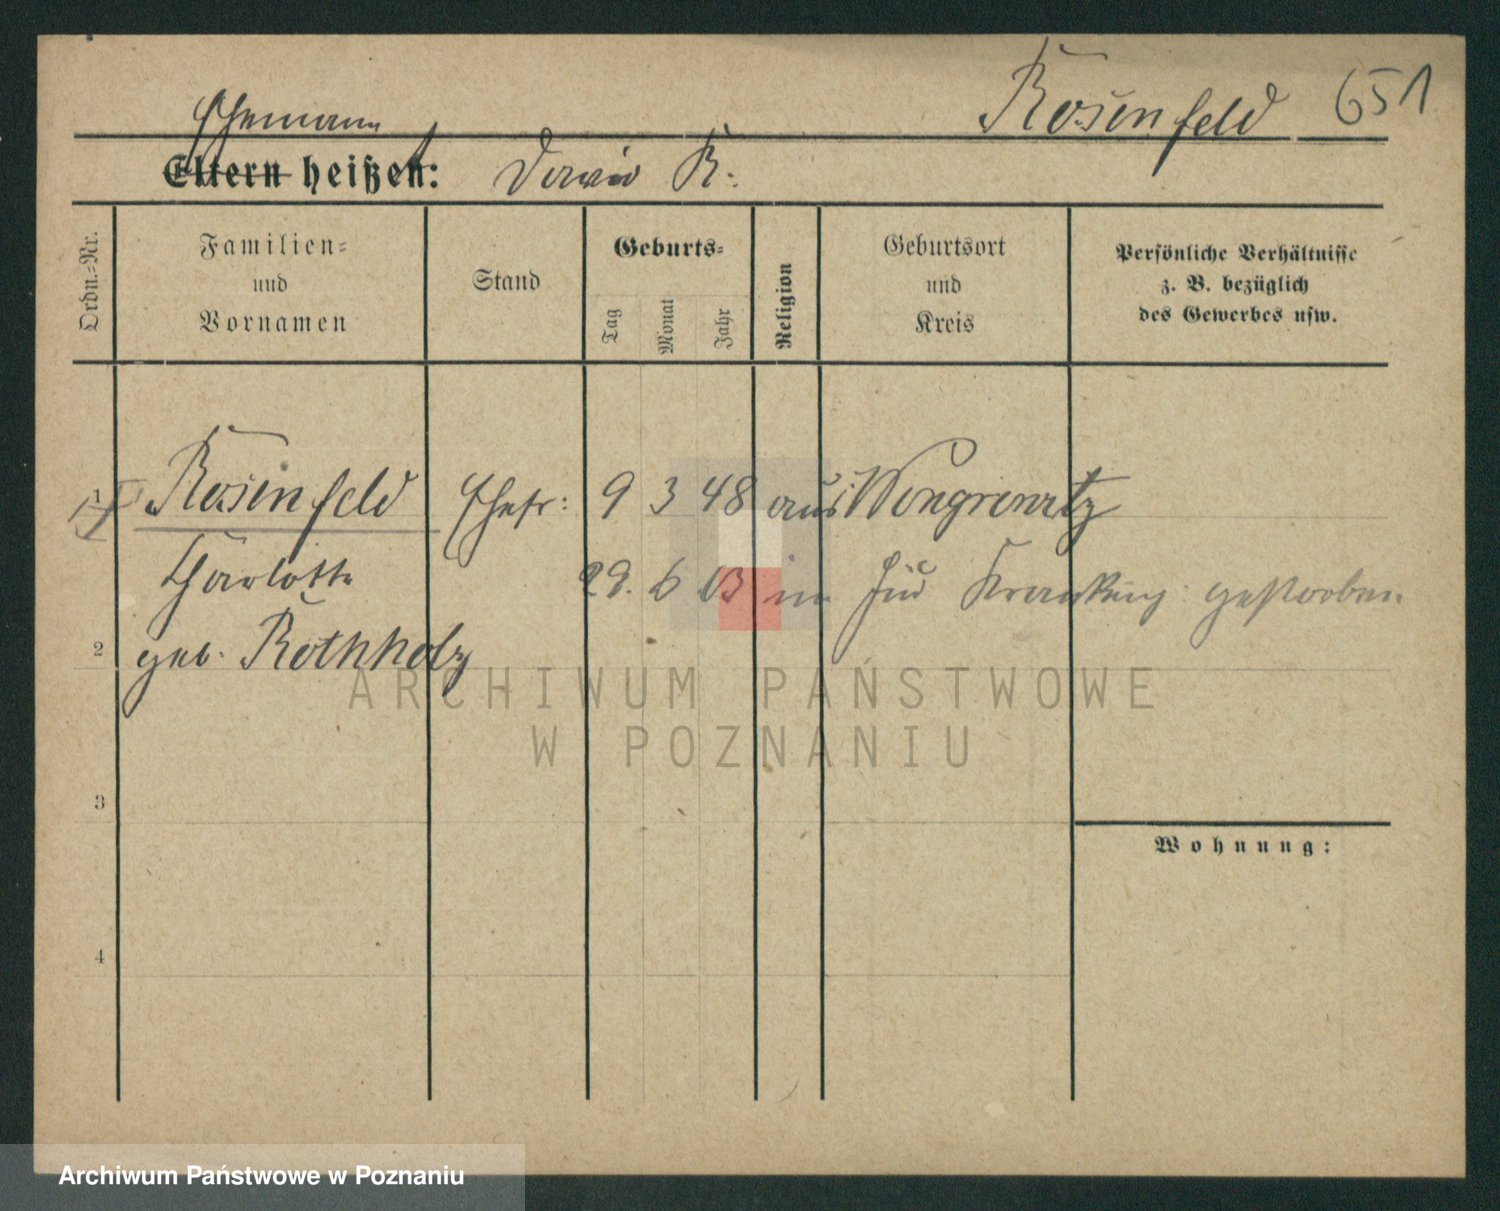 Rosenfeld 651
Ehemann
Eltern heißen: David R.
Ordn.-Nr.
Familien-
und
Vornamen
Stand
Geburts-
Tag
Monat
Jahr
Religion
Geburtsort
und
Kreis
Persönliche Verhältnisse
z. B. bezüglich
des Gewerbes usw.
1 Rosenfeld Ehefr: 9 3 48 aus Wongrowitz
Charlotte 29. 6 03 im jüd Krankhs gestorben
2 geb. Rothholz
ARCHIWUM PAŃSTWOWE
W POZNANIU
3
Wohnung:
4
Archiwum Państwowe w Poznaniu